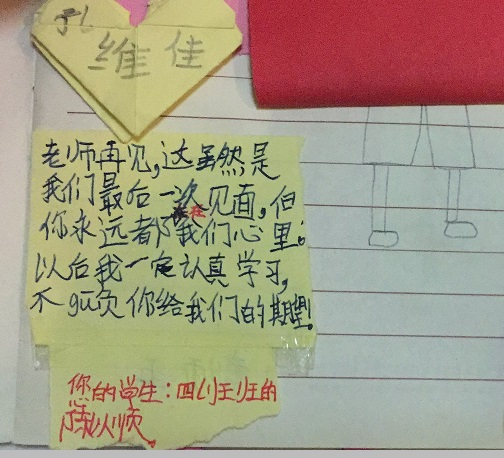 孔
维佳
老师再见,这虽然是
我们最后一次见面,但
你永远都在我们心里。
以后我一定认真学习,
不gu负你给我们的期望!
您的学生:四班的
陈以顺